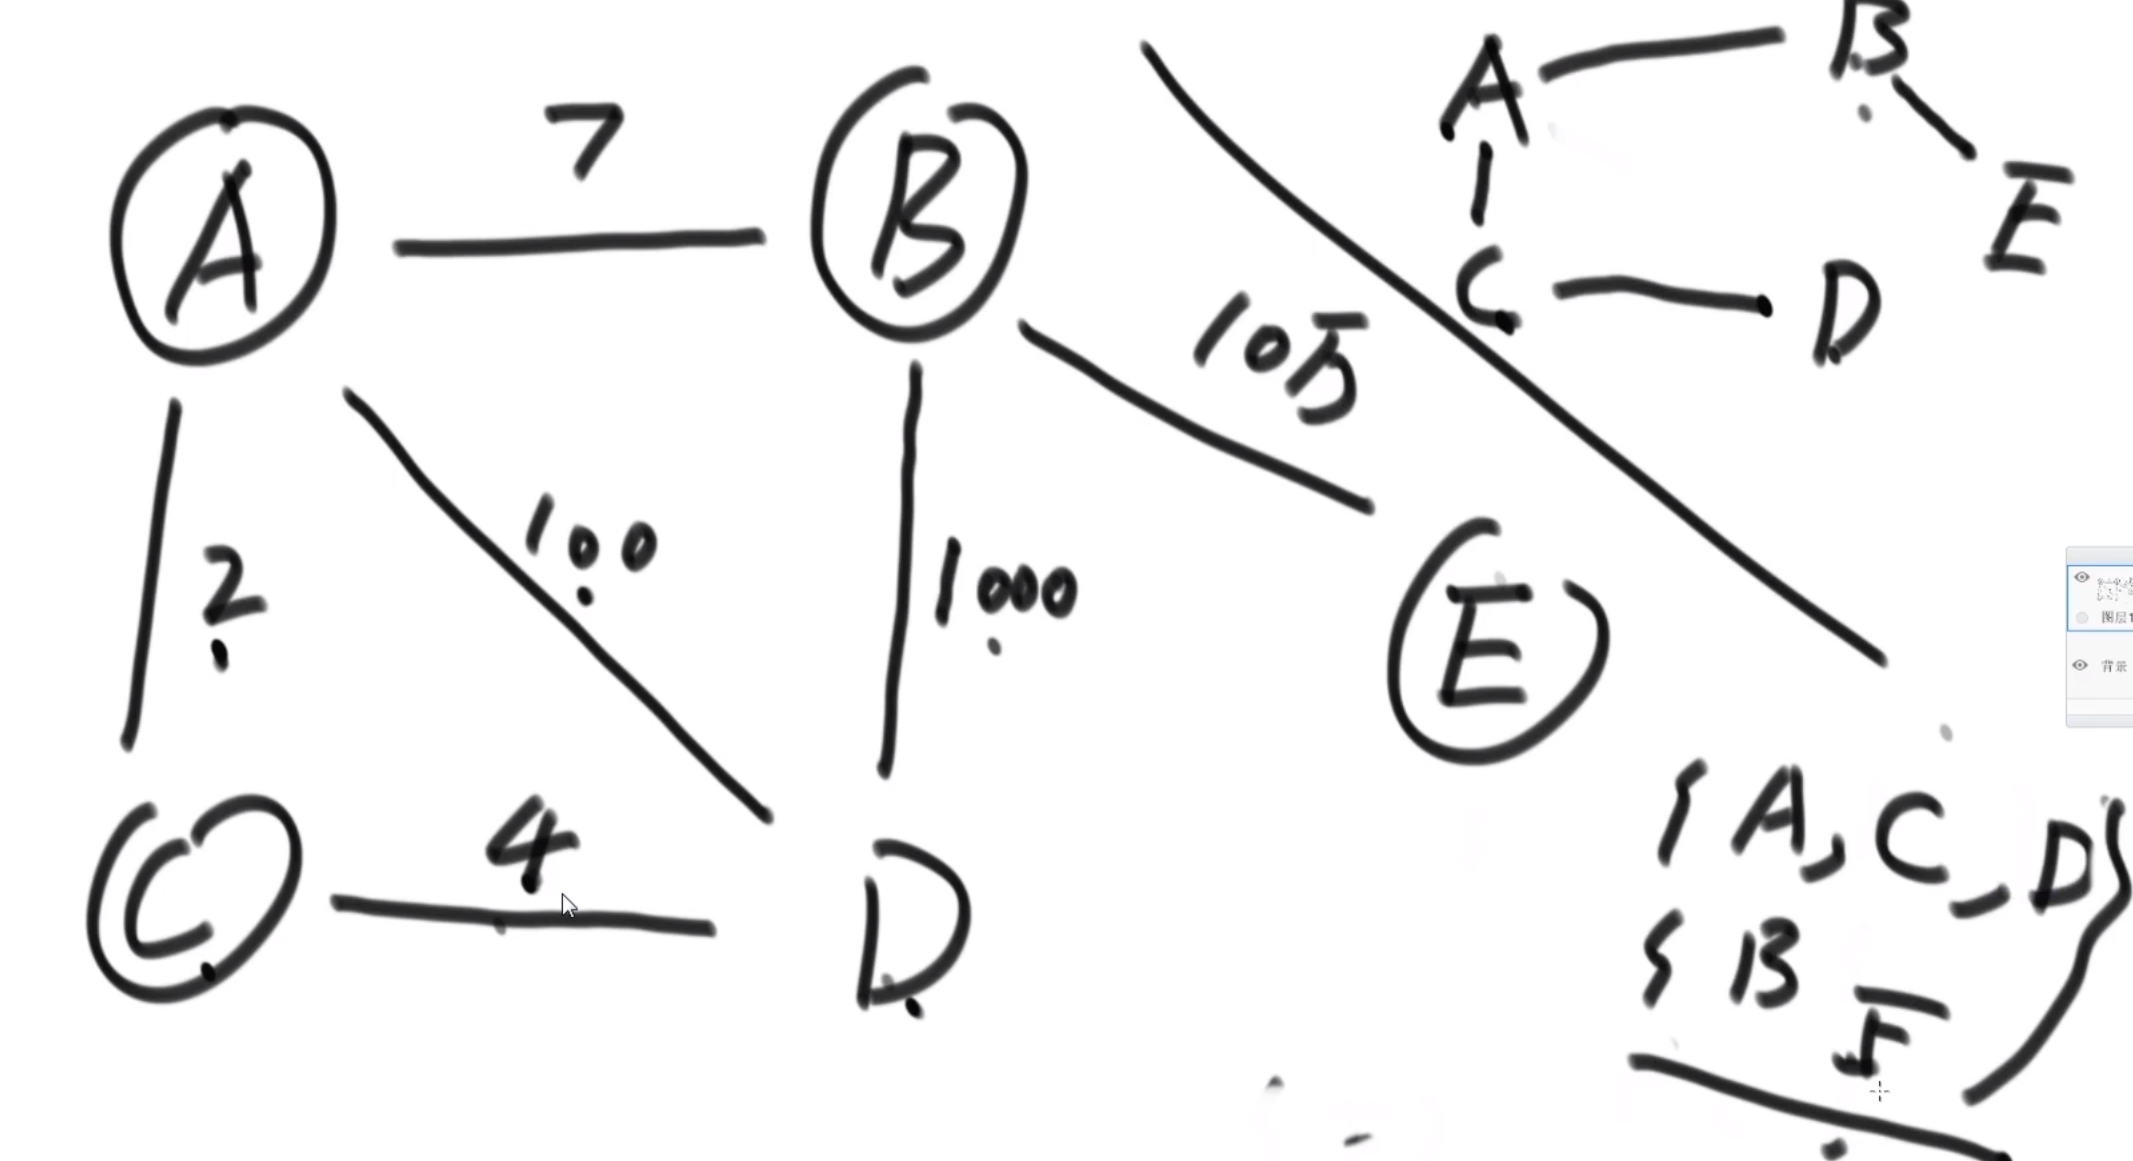 A
7
B
10万
2
100
1000
E
C
4
D
A
B
E
C
D
{A, C, D}
{B E
图层1
背景